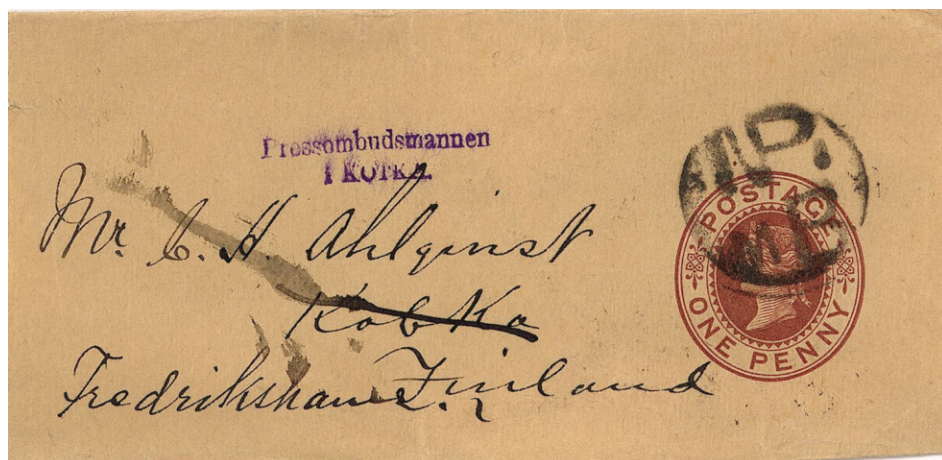 Pressombudsmannen
I KOTKA.
Mr. C. H. Ahlqvist
Kotka
Fredrikshamn. Finland
POSTAGE
ONE PENNY